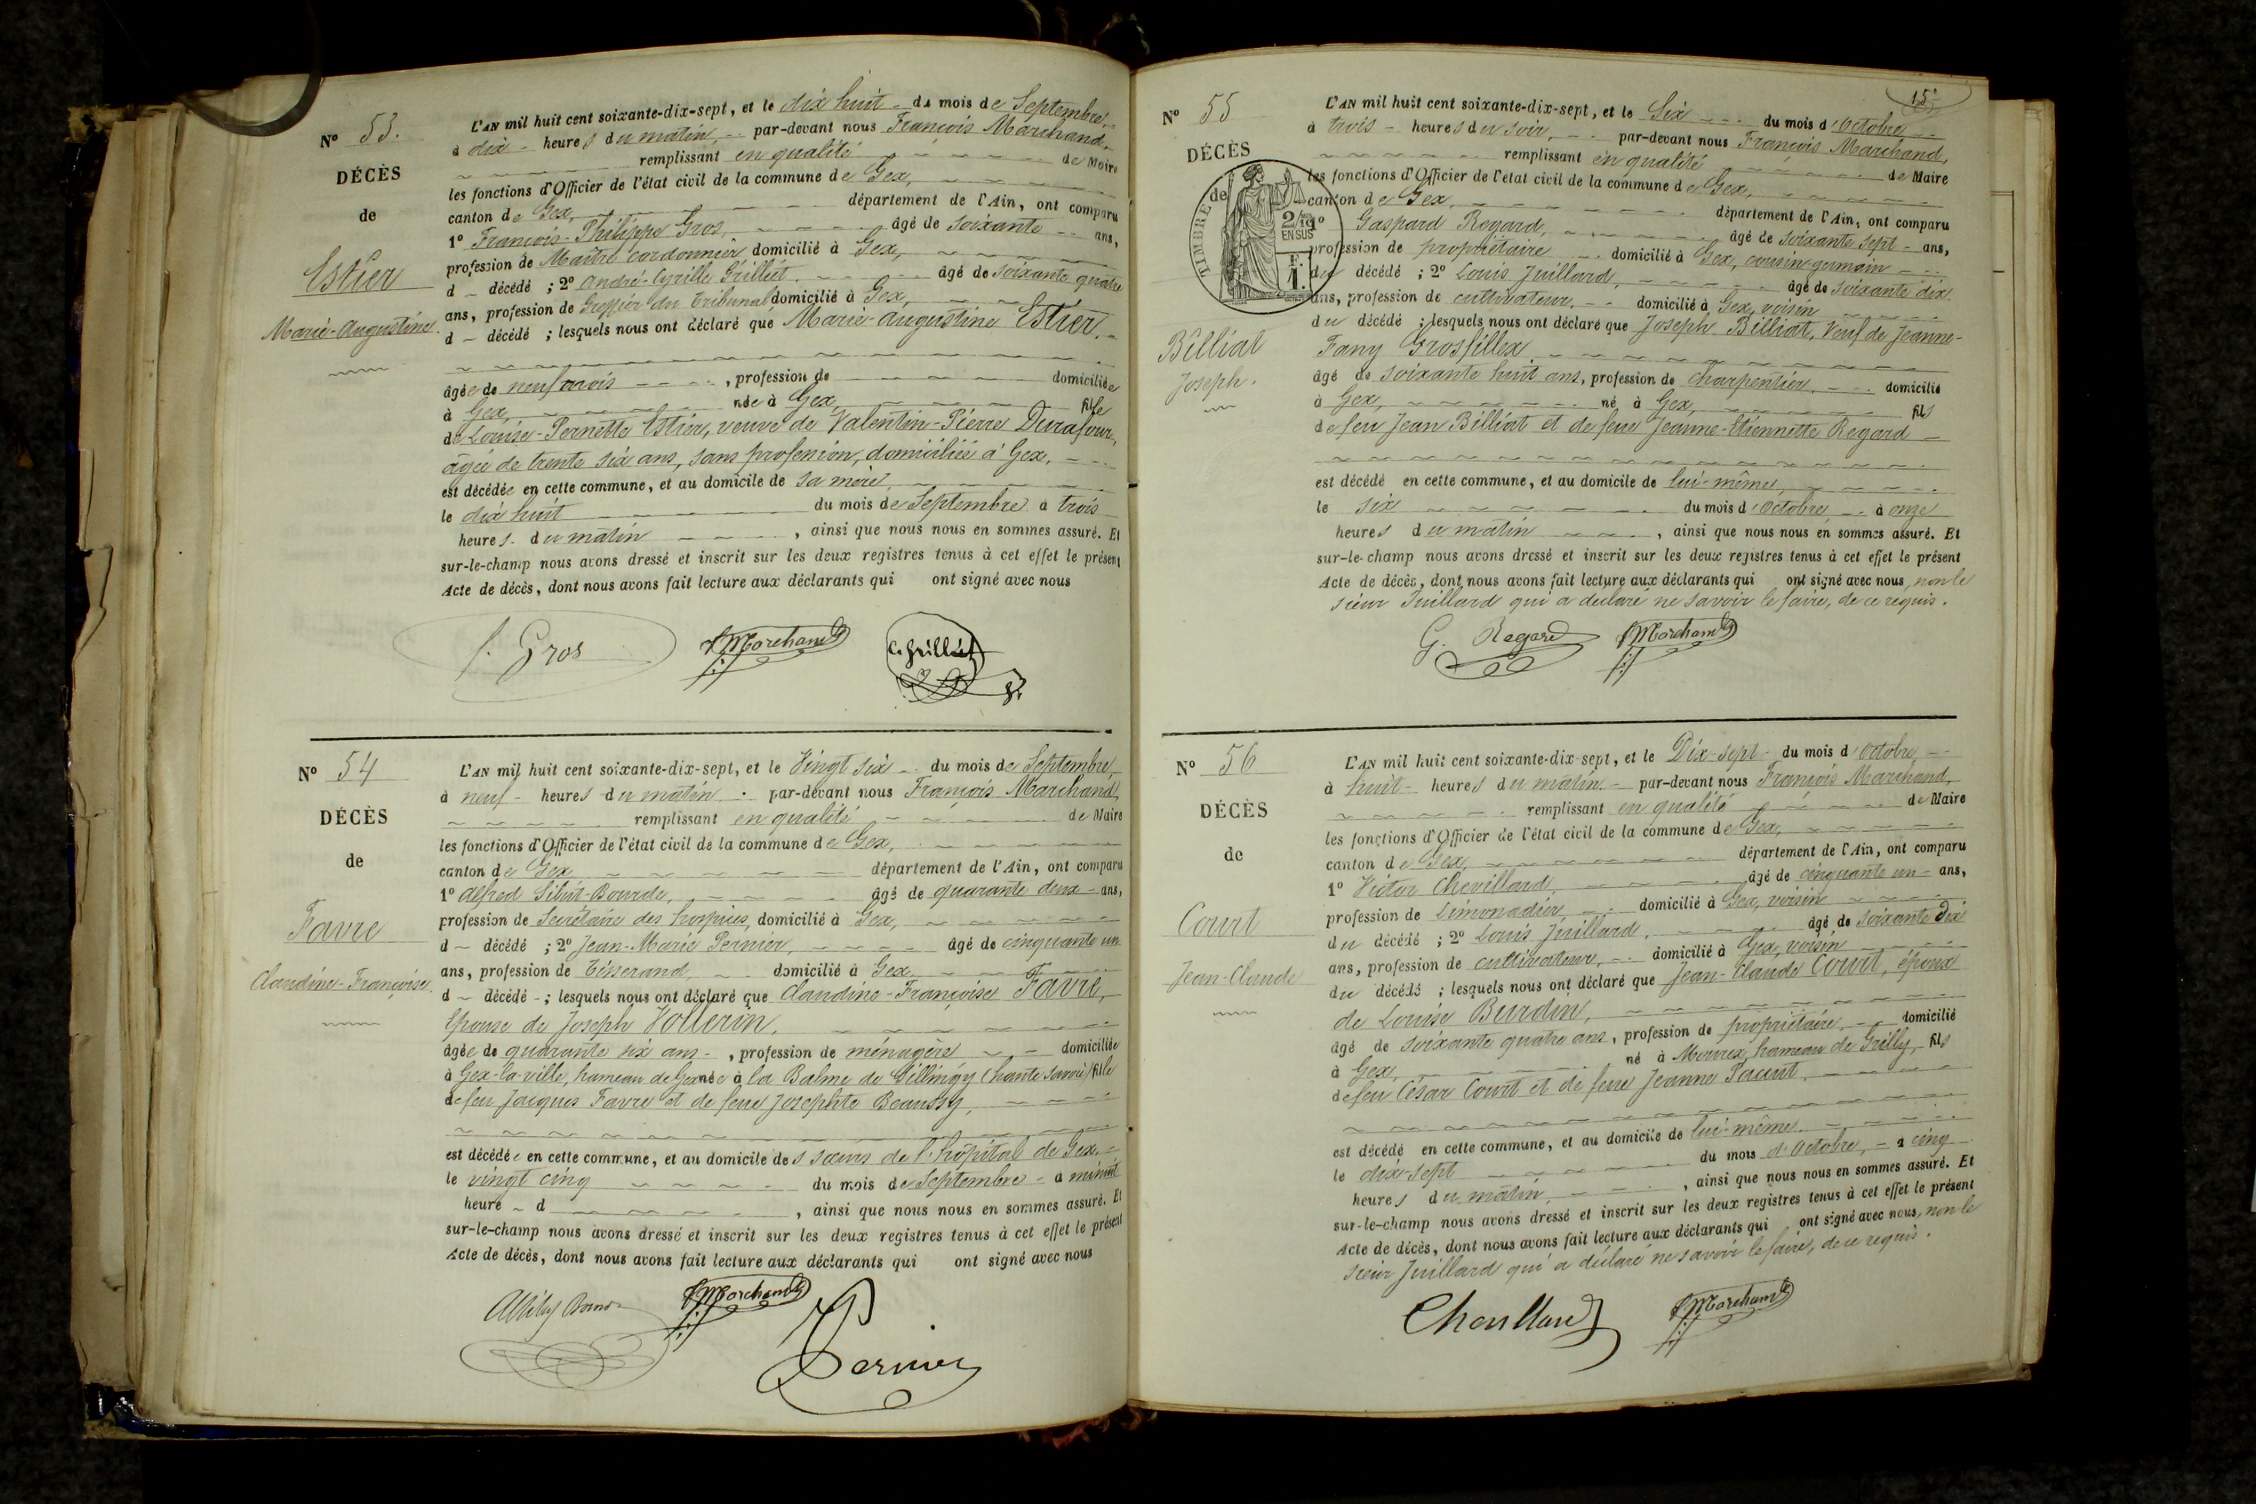 Nº 53.
DÉCÈS
de
Estier
Marie-Augustine.
L'AN mil huit cent soixante-dix-sept, et le dix huit du mois de Septembre,
à dix heures du matin, par-devant nous François Marchand,
remplissant en qualité de Maire
les fonctions d'Officier de l'état civil de la commune de Gex,
canton de Gex, département de l'Ain, ont comparu
1º François-Philippe Gros, âgé de soixante ans,
profession de Maître cordonnier domicilié à Gex,
d décédé ; 2º André-Cyrille Grillet âgé de soixante quatre
ans, profession de Greffier du Tribunal domicilié à Gex,
d décédé ; lesquels nous ont déclaré que Marie-Augustine Estier,
âgée de neuf mois , profession de domiciliée
à Gex, née à Gex, fille
de Louise-Pernette Estier, veuve de Valentin-Pierre Durafour,
âgée de trente six ans, sans profession, domiciliée à Gex,
est décédée en cette commune, et au domicile de sa mère,
le dix huit du mois de Septembre à trois
heures du matin , ainsi que nous nous en sommes assuré. Et
sur-le-champ nous avons dressé et inscrit sur les deux registres tenus à cet effet le présent
Acte de décès, dont nous avons fait lecture aux déclarants qui ont signé avec nous
f. Gros fMarchand C. Grillet
Nº 54
DÉCÈS
de
Favre
Claudine-Françoise.
L'AN mil huit cent soixante-dix-sept, et le Vingt six du mois de Septembre,
à neuf heures du matin par-devant nous François Marchand,
remplissant en qualité de Maire
les fonctions d'Officier de l'état civil de la commune de Gex,
canton de Gex département de l'Ain, ont comparu
1º Alfred Bourde, âgé de quarante deux ans,
profession de Secrétaire des hospices, domicilié à Gex,
d décédé ; 2º Jean-Marie Pernier, âgé de cinquante un
ans, profession de Tisserand, domicilié à Gex
d décédé ; lesquels nous ont déclaré que Claudine-Françoise Favre,
épouse de Joseph Vollerin,
âgée de quarante six ans , profession de ménagère domiciliée
à Gex-la-ville, hameau de Gex née à la Balme de Sillingy (haute Savoie) fille
de feu Jacques Favre et de feue Josephte Beaussy,
est décédée en cette commune, et au domicile des sœurs de l'hôpital de Gex
le vingt cinq du mois de Septembre à minuit
heure d , ainsi que nous nous en sommes assuré. Et
sur-le-champ nous avons dressé et inscrit sur les deux registres tenus à cet effet le présent
Acte de décès, dont nous avons fait lecture aux déclarants qui ont signé avec nous
fMarchand
Pernier
15
Nº 55
DÉCÈS
de
TIMBRE
2/10
EN SUS
F.
1.
Billiat
Joseph.
L'AN mil huit cent soixante-dix-sept, et le Six du mois d'Octobre
à trois heures du soir, par-devant nous François Marchand,
remplissant en qualité de Maire
les fonctions d'Officier de l'état civil de la commune de Gex,
canton de Gex, département de l'Ain, ont comparu
1º Gaspard Regard, âgé de soixante sept ans,
profession de propriétaire domicilié à Gex, cousin-germain
du décédé ; 2º Louis Juillard, âgé de soixante dix
ans, profession de cultivateur, domicilié à Gex, voisin
du décédé ; lesquels nous ont déclaré que Joseph Billiat, veuf de Jeanne-
Fany Grosfillex
âgé de soixante huit ans, profession de charpentier, domicilié
à Gex, né à Gex, fils
de feu Jean Billiat et de feue Jeanne-Etiennette Regard
est décédé en cette commune, et au domicile de lui-même,
le six du mois d'Octobre à onze
heures du matin , ainsi que nous nous en sommes assuré. Et
sur-le-champ nous avons dressé et inscrit sur les deux registres tenus à cet effet le présent
Acte de décès, dont nous avons fait lecture aux déclarants qui ont signé avec nous, non le
sieur Juillard qui a déclaré ne savoir le faire, de ce requis.
G. Regard fMarchand
Nº 56
DÉCÈS
de
Court
Jean-Claude
L'AN mil huit cent soixante-dix-sept, et le Dix-sept du mois d'Octobre,
à huit heures du matin par-devant nous François Marchand,
remplissant en qualité de Maire
les fonctions d'Officier de l'état civil de la commune de Gex,
canton de Gex, département de l'Ain, ont comparu
1º Victor Chevillard, âgé de cinquante un ans,
profession de Limonadier, domicilié à Gex, voisin
du décédé ; 2º Louis Juillard, âgé de soixante dix
ans, profession de cultivateur, domicilié à Gex, voisin
du décédé ; lesquels nous ont déclaré que Jean-Claude Court, époux
de Louise Burdin,
âgé de soixante quatre ans, profession de propriétaire, domicilié
à Gex, né à Mourex, hameau de Grilly, fils
de feu César Court et de feue Jeanne
est décédé en cette commune, et au domicile de lui-même
le dix-sept du mois d'Octobre, à cinq
heures du matin, , ainsi que nous nous en sommes assuré. Et
sur-le-champ nous avons dressé et inscrit sur les deux registres tenus à cet effet le présent
Acte de décès, dont nous avons fait lecture aux déclarants qui ont signé avec nous, non le
sieur Juillard qui a déclaré ne savoir le faire, de ce requis.
Chevillard fMarchand